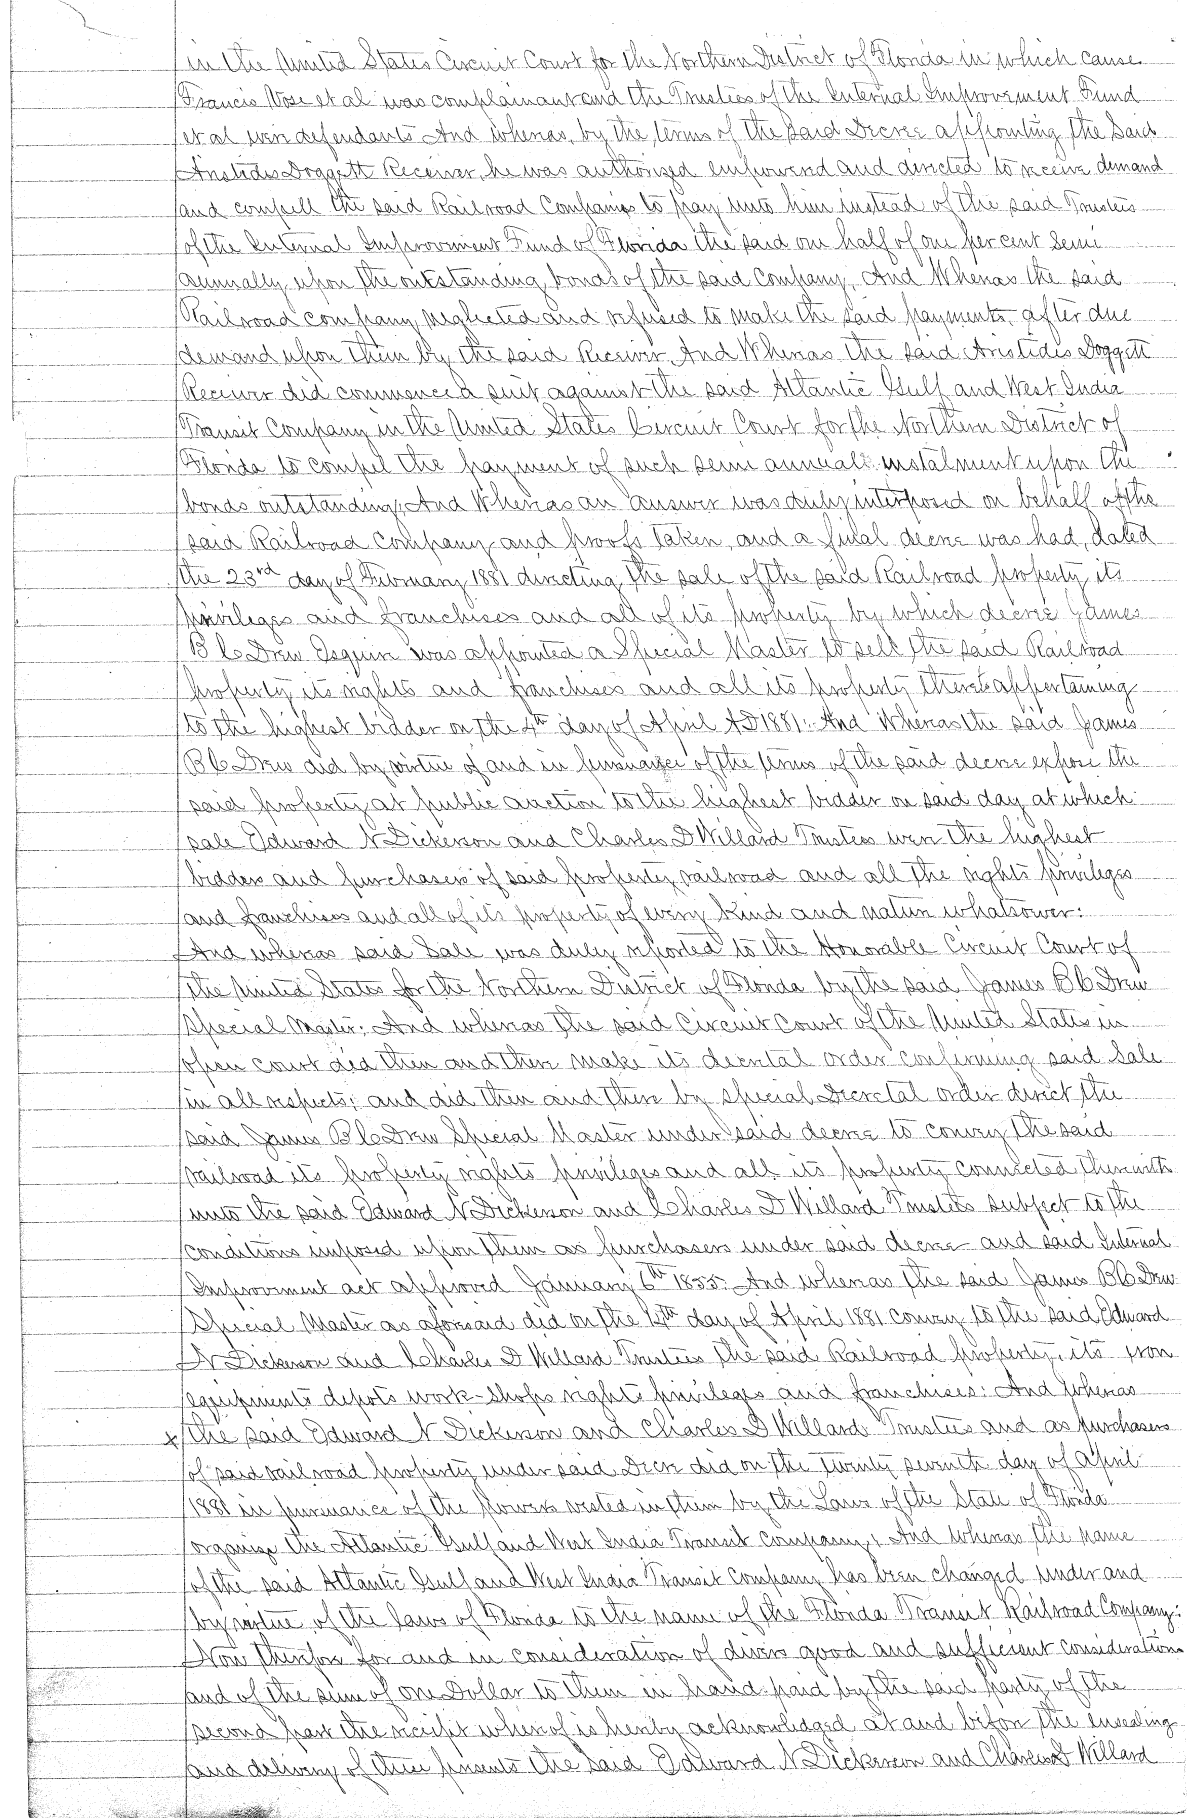 in the United States Circuit Court for the Northern District of Florida in which cause
Francis Vose et al was complainant and the Trustees of the Internal Improvement Fund
et al were defendants And whereas, by the terms of the said Decree appointing the said
Aristides Doggett Receiver, he was authorized empowered and directed to receive demand
and compell the said Railroad Companies to pay unto him instead of the said Trustees
of the Internal Improvement Fund of Florida the said one half of one per cent semi
annually upon the outstanding bonds of the said Company, And Whereas the said
Railroad company neglected and refused to make the said payments, after due
demand upon them by the said Receiver, And Whereas, the said Aristides Doggett
Receiver did commence a suit against the said Atlantic Gulf and West India
Transit Company in the United States Circuit Court for the Northern District of
Florida to compel the payment of such semi annual instalment upon the
bonds outstanding; And Whereas an answer was duly interposed on behalf of the
said Railroad Company and proofs taken, and a final decree was had, dated
the 23rd day of February 1881 directing the sale of the said Railroad property, its
privileges and franchises and all of its property by which decree James
B C Drew Esquire was appointed a Special Master to sell the said Railroad
property its rights and franchises and all its property thereto appertaining
to the highest bidder on the 4th day of April AD 1881: And Whereas the said James
B C Drew did by virtue of and in pursuance of the terms of the said decree expose the
said property at public auction to the highest bidder on said day at which
sale Edward N Dickerson and Charles D Willard Trustees were the highest
bidders and purchasers of said property, railroad and all the rights privileges
and franchises and all of its property of every kind and nature whatsoever:
And whereas said Sale was duly reported to the Honorable Circuit Court of
the United States for the Northern District of Florida by the said James B C Drew
Special Master; And whereas the said Circuit Court of the United States in
open court did then and there make its decretal order confirming said Sale
in all respects; and did then and there by special Decretal order direct the
said James B C Drew Special Master under said decree to convey the said
railroad its property rights privileges and all its property connected therewith
unto the said Edward N Dickerson and Charles D Willard Trustees subject to the
conditions imposed upon them as purchasers under said decree and said Internal
Improvement act approved January 6th 1855. And whereas the said James B C Drew
Special Master as aforesaid did on the 4th day of April 1881 convey to the said Edward
N Dickerson and Charles D Willard Trustees the said Railroad property, its iron
equipments depots work-shops rights privileges and franchises: And whereas
x the said Edward N Dickerson and Charles D Willard Trustees and as purchasers
of said railroad property under said Decree did on the twenty seventh day of April
1881 in pursuance of the powers vested in them by the Laws of the State of Florida
organise the Atlantic Gulf and West India Transit Company; And whereas the name
of the said Atlantic Gulf and West India Transit Company has been changed under and
by virtue of the laws of Florida to the name of the Florida Transit Railroad Company:
Now therefore for and in consideration of divers good and sufficient considerations
and of the sum of one Dollar to them in hand paid by the said party of the
second part the receipt whereof is hereby acknowledged at and before the ensealing
and delivery of these presents the said Edward N Dickerson and Charles D Willard